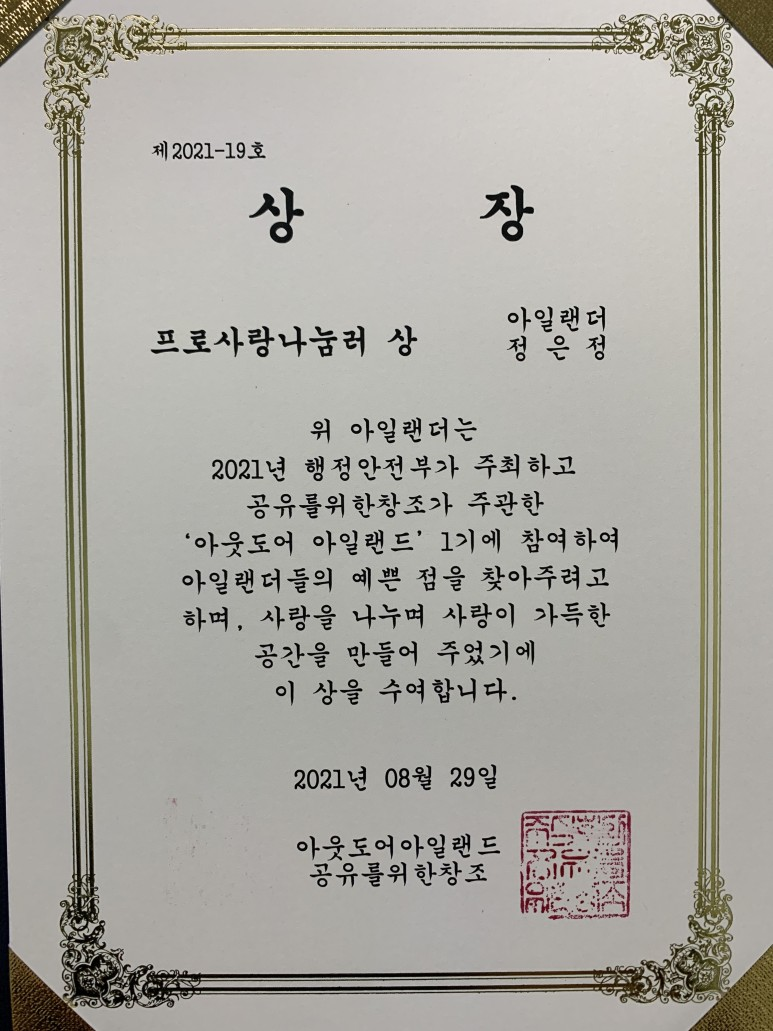 제2021-19호
상 장
프로사랑나눔러 상
아일랜더
정 은 정
위 아일랜더는
2021년 행정안전부가 주최하고
공유를위한창조가 주관한
‘아웃도어 아일랜드’ 1기에 참여하여
아일랜더들의 예쁜 점을 찾아주려고
하며, 사랑을 나누며 사랑이 가득한
공간을 만들어 주었기에
이 상을 수여합니다.
2021년 08월 29일
아웃도어아일랜드
공유를위한창조